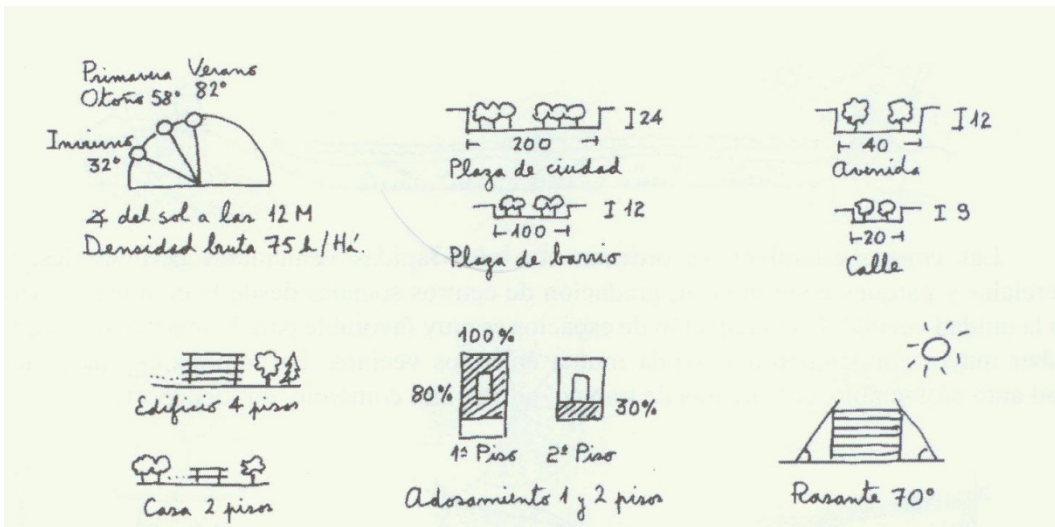 Primavera Verano
Otoño 58° 82°
Invierno
32°
∡ del sol a las 12 M
Densidad bruta 75 h/Há.
24
200
Plaza de ciudad
12
100
Plaza de barrio
12
40
Avenida
9
20
Calle
Edificio 4 pisos
Casa 2 pisos
100%
80%
30%
1º Piso 2º Piso
Adosamiento 1 y 2 pisos
Rasante 70°